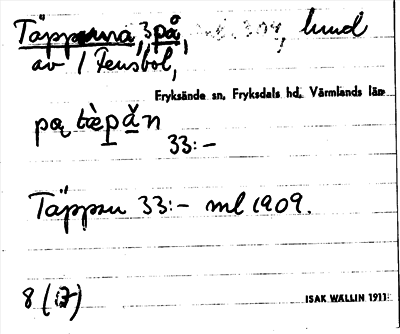 Täpparna, 3 på, lund
av 1 Fensbol,
Fryksände sn, Fryksdals hd, Värmlands län
pa tæpăn
33:-
Täppan 33:- ml 1909.
8 (i7)
ISAK WALLIN 1911